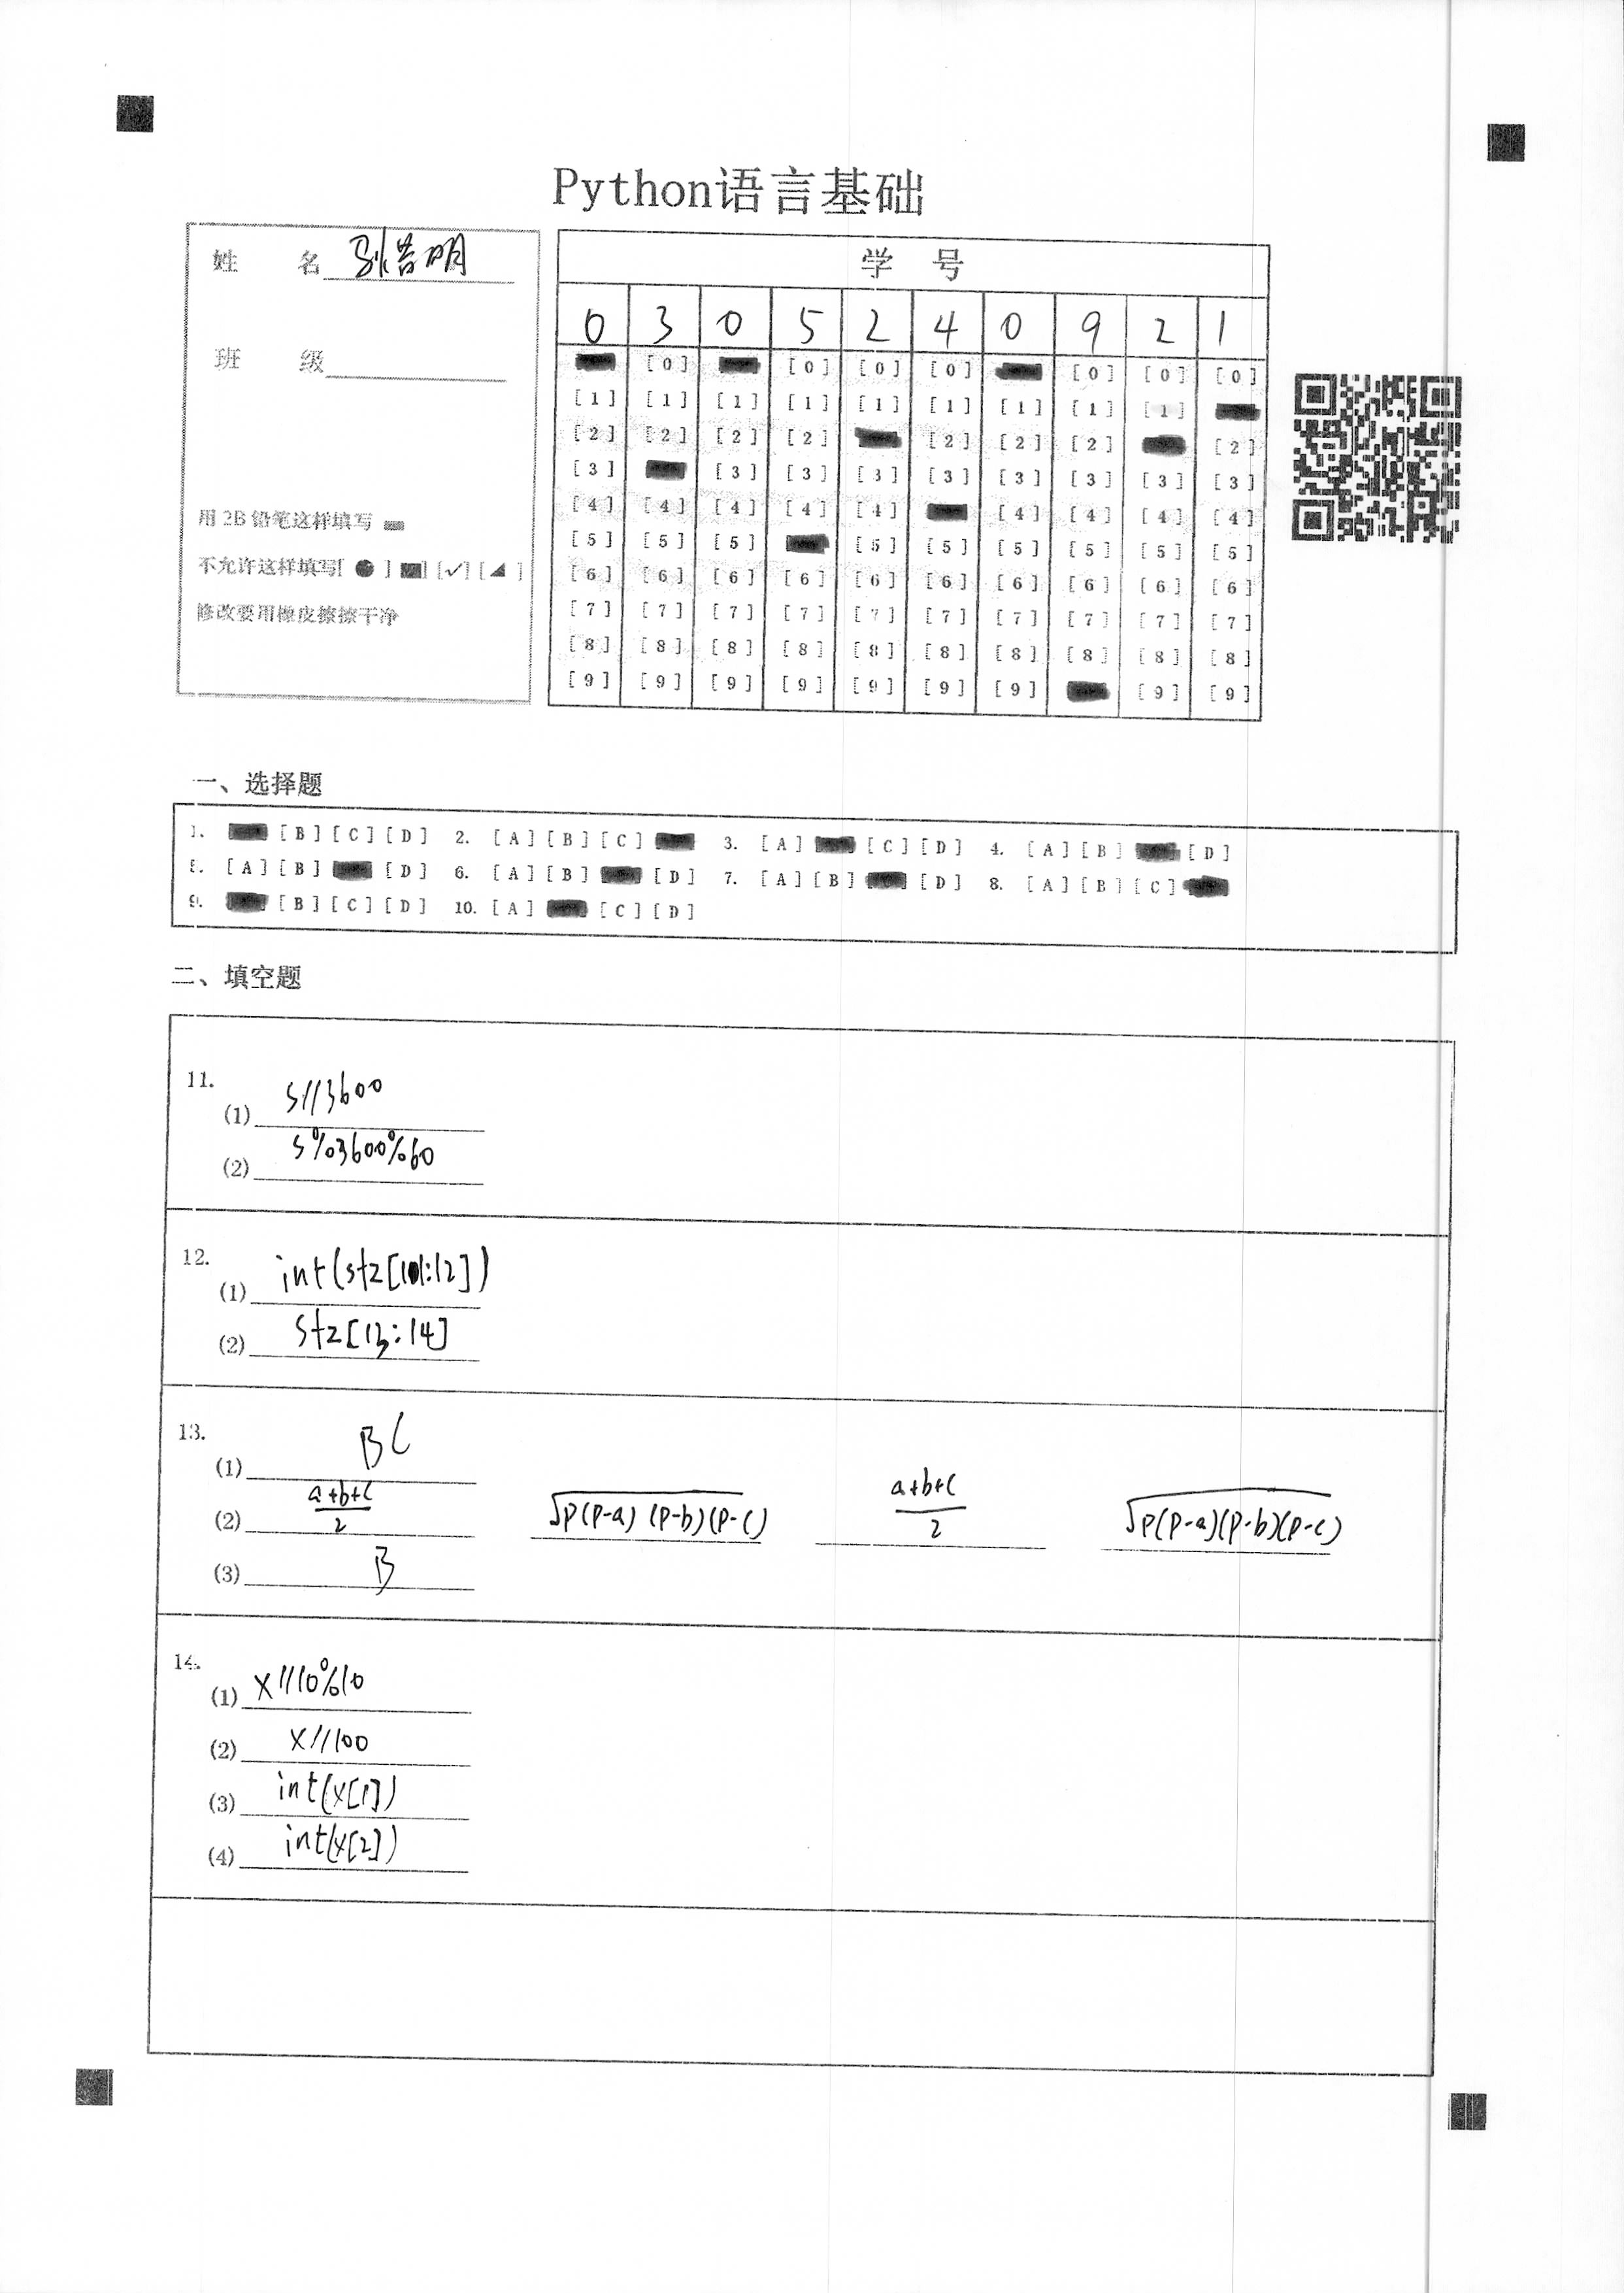 Python语言基础
姓 名
班 级
用 2B 铅笔这样填写
不允许这样填写[ ● ] [■] [✓] [◢ ]
修改要用橡皮擦擦干净
学 号
0 3 0 5 2 4 0 9 2 1
[0] [0] [0] [0] [0] [0] [0]
[1] [1] [1] [1] [1] [1] [1] [1] [1]
[2] [2] [2] [2] [2] [2] [2] [2]
[3] [3] [3] [3] [3] [3] [3] [3] [3]
[4] [4] [4] [4] [4] [4] [4] [4] [4]
[5] [5] [5] [5] [5] [5] [5] [5] [5]
[6] [6] [6] [6] [6] [6] [6] [6] [6] [6]
[7] [7] [7] [7] [7] [7] [7] [7] [7] [7]
[8] [8] [8] [8] [8] [8] [8] [8] [8] [8]
[9] [9] [9] [9] [9] [9] [9] [9] [9]
一、选择题
1. [B] [C] [D] 2. [A] [B] [C] 3. [A] [C] [D] 4. [A] [B] [D]
5. [A] [B] [D] 6. [A] [B] [D] 7. [A] [B] [D] 8. [A] [B] [C]
9. [B] [C] [D] 10. [A] [C] [D]
二、填空题
11.
(1) s//3600
(2) s%3600%60
12.
(1) int(st2[11:12])
(2) st2[13:14]
13.
(1) BC
(2) a+b+c/2 √p(p-a)(p-b)(p-c) a+b+c/2 √p(p-a)(p-b)(p-c)
(3) B
14.
(1) x//10%10
(2) x//100
(3) int(x[1])
(4) int(x[2])